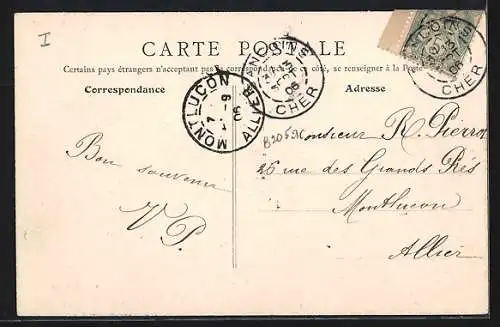 I
CARTE POSTALE
Certains pays étrangers n'acceptant pas la correspondance de ce côté, se renseigner à la Poste
Correspondance
Adresse
SANCOINS
CHER
SANCOINS
CHER
MONTLUÇON
ALLIER
Monsieur R. Pierron
26 rue des Grands Prés
Montlucon
Allier
Bon souvenir
V P.